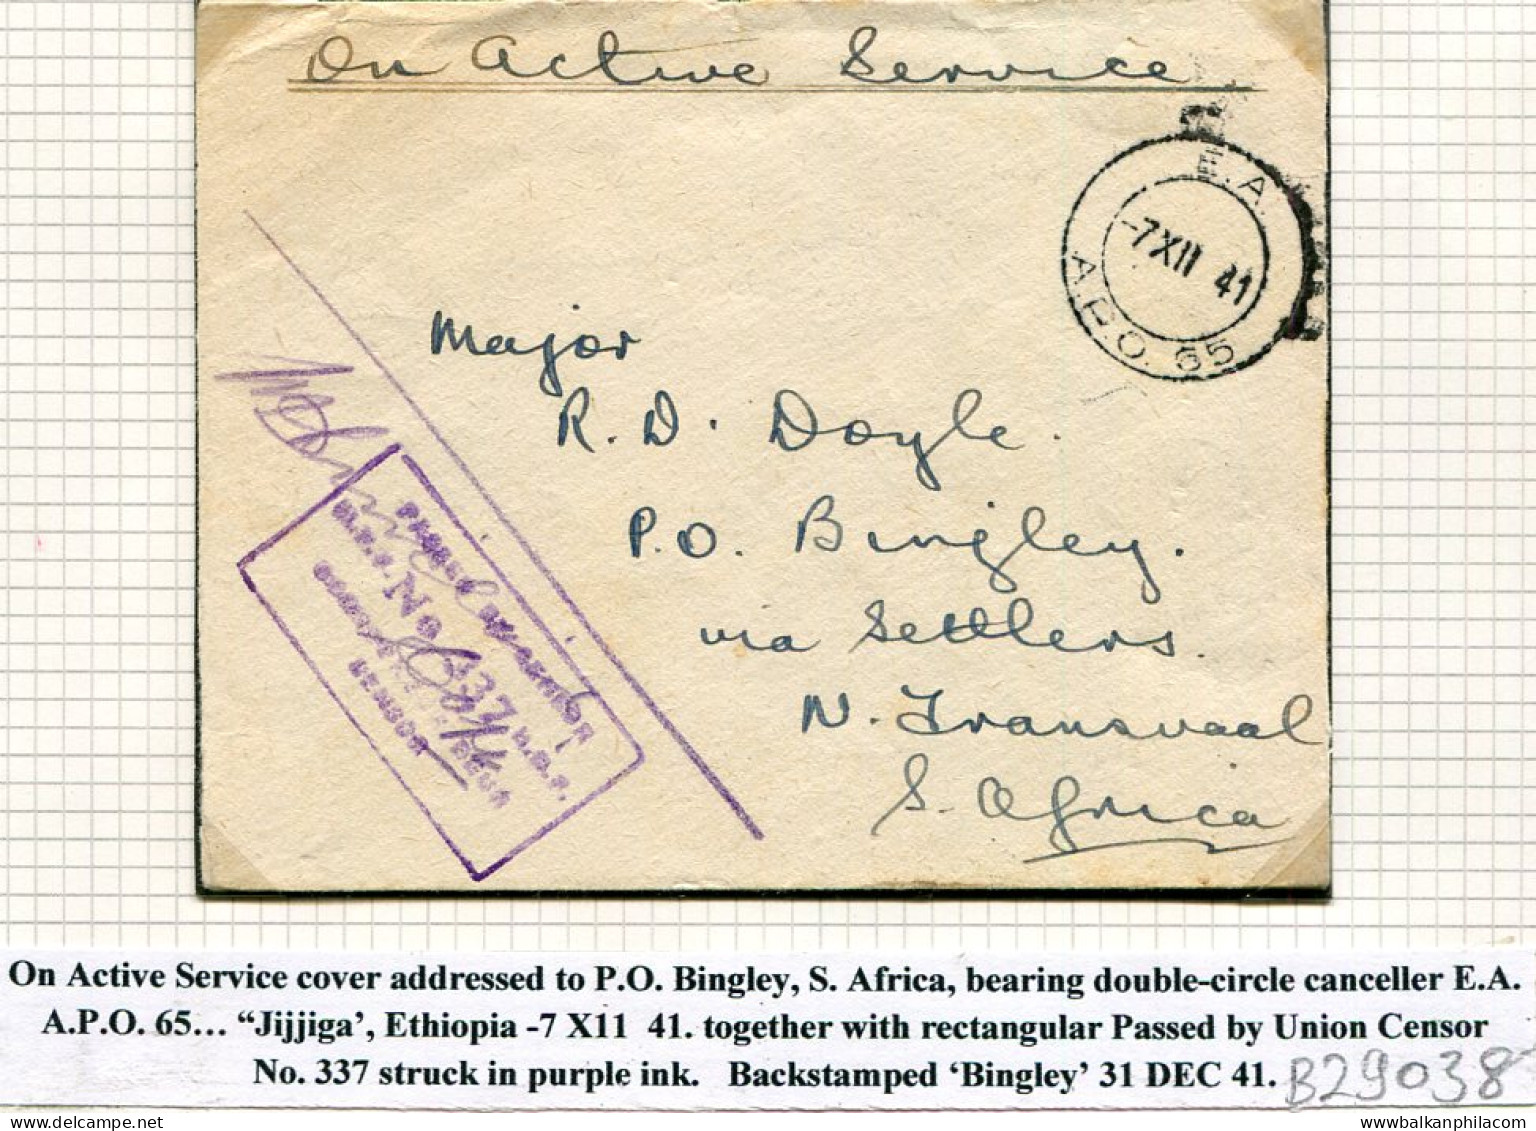 On Active Service
E.A.
-7 XII 41
A.P.O. 65
Major
R. D. Doyle.
P.O. Bingley.
via Settlers.
N. Transvaal
S. Africa
PASSED
No. 337
U.D.F.
CENSOR
On Active Service cover addressed to P.O. Bingley, S. Africa, bearing double-circle canceller E.A.
A.P.O. 65... “Jijjiga’, Ethiopia -7 X11 41. together with rectangular Passed by Union Censor
No. 337 struck in purple ink. Backstamped ‘Bingley’ 31 DEC 41.
B29038
www.balkanphila.com